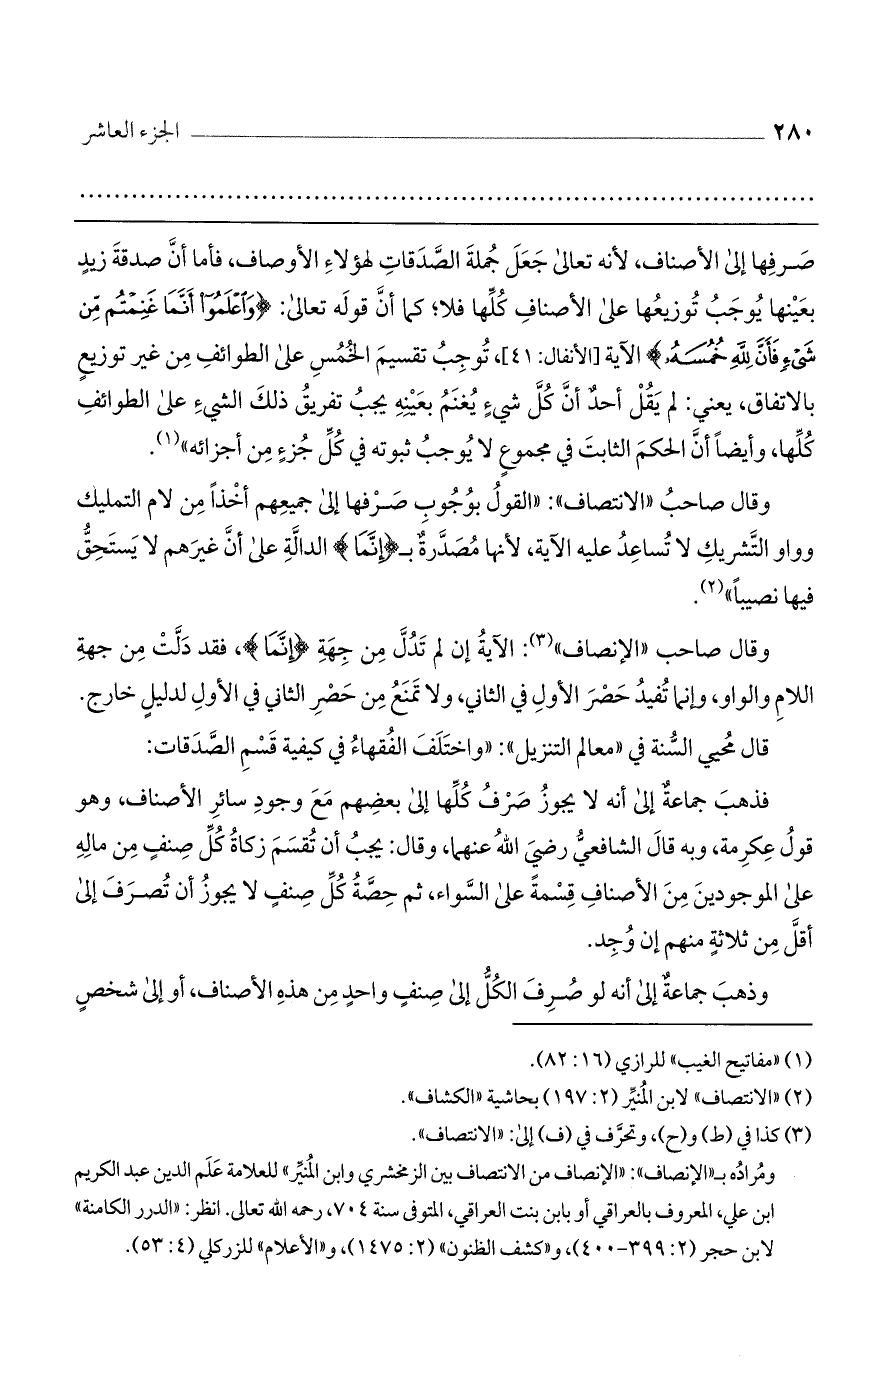 ٢٨٠ الجزء العاشر
صَرفِها إلىٰ الأصناف، لأنه تعالىٰ جَعَلَ جُملةَ الصَّدَقاتِ لهؤلاءِ الأوصاف، فأما أنَّ صدقةَ زيدٍ
بعَيْنها يُوجَبُ تُوزيعُها علىٰ الأصنافِ كُلِّها فلا؛ كما أنَّ قولَه تعالىٰ: ﴿وَٱعْلَمُوٓا۟ أَنَّمَا غَنِمْتُم مِّن
شَىْءٍ فَأَنَّ لِلَّهِ خُمُسَهُۥ﴾ الآية [الأنفال: ٤١]، تُوجِبُ تقسيمَ الخُمُسِ علىٰ الطوائفِ مِن غير توزيعٍ
بالاتفاق، يعني: لم يَقُلْ أحدٌ أنَّ كُلَّ شيءٍ يُغنَمُ بعَيْنِهِ يجبُ تفريقُ ذلكَ الشيءِ علىٰ الطوائفِ
كُلِّها، وأيضاً أنَّ الحكمَ الثابتَ في مجموعٍ لا يُوجبُ ثبوته في كُلِّ جُزءٍ مِن أجزائه»(١).
وقال صاحبُ «الانتصاف»: «القولُ بوُجُوبِ صَرْفها إلىٰ جميعِهم أخْذاً مِن لام التمليك
وواو التَّشريكِ لا تُساعِدُ عليه الآية، لأنها مُصَدَّرةٌ بـ﴿إِنَّمَا﴾ الدالَّةِ علىٰ أنَّ غيرَهم لا يَستَحِقُّ
فيها نصيباً»(٢).
وقال صاحب «الإنصاف»(٣): الآيةُ إن لم تَدُلَّ مِن جِهَةِ ﴿إِنَّمَا﴾، فقد دَلَّتْ مِن جهةِ
اللامِ والواو، وإنما تُفيدُ حَصْرَ الأولِ في الثاني، ولا تَمنَعُ مِن حَصْرِ الثاني في الأولِ لدليلٍ خارج.
قال مُحيي السُّنة في «معالم التنزيل»: «واختَلَفَ الفُقهاءُ في كيفية قَسْمِ الصَّدَقات:
فذهبَ جماعةٌ إلىٰ أنه لا يجوزُ صَرْفُ كُلِّها إلىٰ بعضِهم مَعَ وجودِ سائرِ الأصناف، وهو
قولُ عِكرِمة، وبه قالَ الشافعيُّ رضيَ اللهُ عنهما، وقال: يجبُ أن تُقسَمَ زكاةُ كُلِّ صِنفٍ مِن مالِهِ
علىٰ الموجودينَ مِنَ الأصنافِ قِسْمةً علىٰ السَّواء، ثم حِصَّةُ كُلِّ صِنفٍ لا يجوزُ أن تُصرَفَ إلىٰ
أقلَّ مِن ثلاثةٍ منهم إن وُجِد.
وذهبَ جماعةٌ إلىٰ أنه لو صُرِفَ الكُلُّ إلىٰ صِنفٍ واحدٍ مِن هذهِ الأصناف، أو إلىٰ شخصٍ
(١) «مفاتيح الغيب» للرازي (١٦: ٨٢).
(٢) «الانتصاف» لابن المُنيِّر (٢: ١٩٧) بحاشية «الكشاف».
(٣) كذا في (ط) و(ح)، وتحرَّف في (ف) إلىٰ: «الانتصاف».
ومُرادُه بـ«الإنصاف»: «الإنصاف من الانتصاف بين الزمخشري وابن المُنيِّر» للعلامة عَلَم الدين عبد الكريم
ابن علي، المعروف بالعراقي أو بابن بنت العراقي، المتوفى سنة ٧٠٤، رحمه الله تعالى. انظر: «الدرر الكامنة»
لابن حجر (٢: ٣٩٩-٤٠٠)، و«كشف الظنون» (٢: ١٤٧٥)، و«الأعلام» للزركلي (٤: ٥٣).